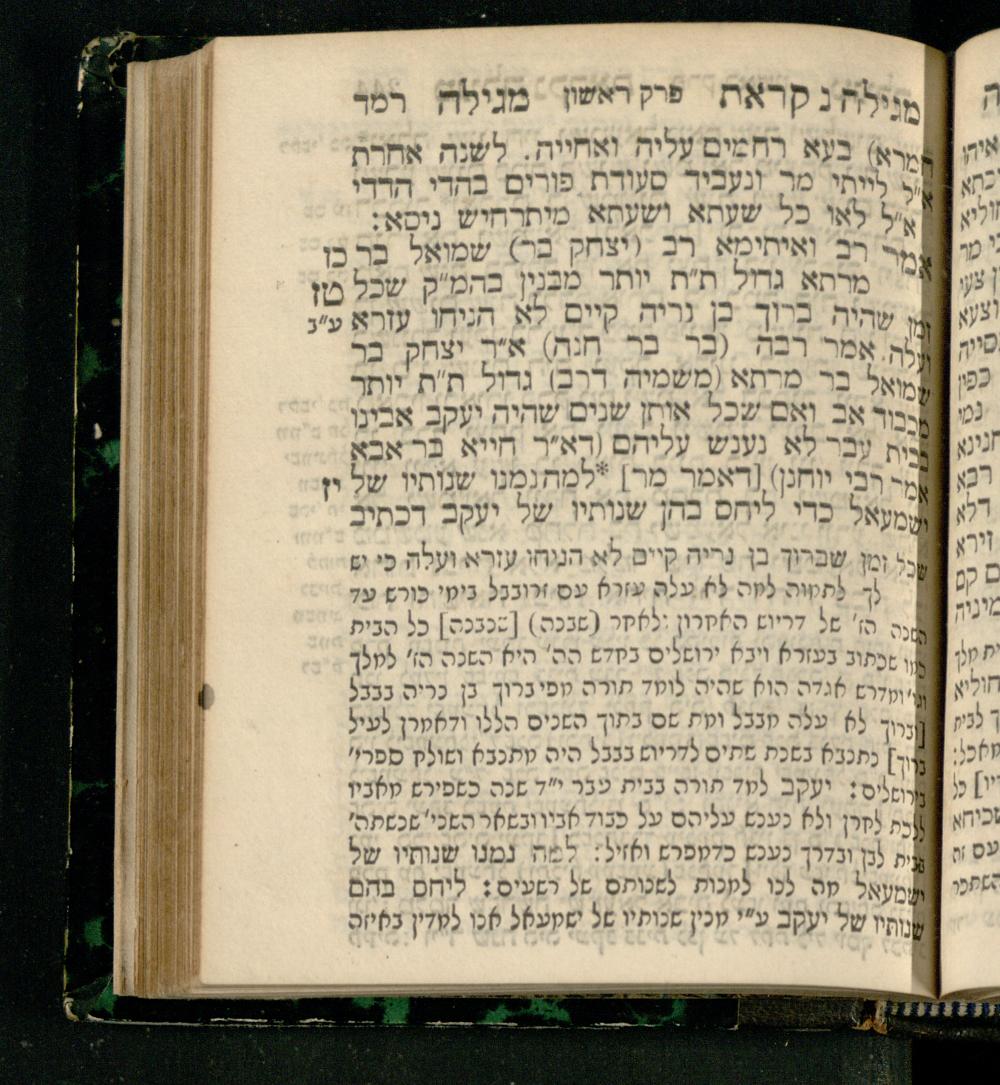 מגילה נקראת פרק ראשון מגילה רמד
חמרא) בעא רחמים עליה ואחייה. לשנה אחרת
א״ל לייתי מר ונעביד סעודת פורים בהדי הדדי
א״ל לאו כל שעתא ושעתא מיתרחיש ניסא:
אמר רב ואיתימא רב (יצחק בר) שמואל בר כז
מרתא גדול ת״ת יותר מבנין בהמ״ק שכל טז
זמן שהיה ברוך בן נריה קיים לא הניחו עזרא ע״ב
ועלה. אמר רבה (בר בר חנה) א״ר יצחק בר
שמואל בר מרתא (משמיה דרב) גדול ת״ת יותר
מכבוד אב ואם שכל אותן שנים שהיה יעקב אבינו
בבית עבר לא נענש עליהם (דא״ר חייא בר אבא
אמר רבי יוחנן) [דאמר מר] *למה נמנו שנותיו של יז
ישמעאל כדי ליחס בהן שנותיו של יעקב דכתיב
שכל זמן שברוך בן נריה קיים לא הניחו עזרא ועלה כי יש
לך לתמוה למה לא עלה עזרא עם זרובבל בימי כורש עד
השנה הז׳ של דריוש האחרון לאחר (שבנה) [שנבנה] כל הבית
כמו שכתוב בעזרא ויבא ירושלים בחדש הה׳ היא השנה הז׳ למלך
וגו׳ ומדרש אגדה הוא שהיה לומד תורה מפי ברוך בן נריה בבבל
[וברוך לא עלה מבבל ומת שם בתוך השנים הללו ודאמרן לעיל
ברוך] נתנבא בשנת שתים לדריוש בבבל היה מתנבא ושולח ספרי׳
בירושלים: יעקב למד תורה בבית עבר י״ד שנה כשפירש מאביו
ללכת לחרן ולא נענש עליהם על כבוד אביו ובשאר השני׳ שנשתה׳
בבית לבן ובדרך נענש כדמפרש ואזיל: למה נמנו שנותיו של
ישמעאל מה לנו למנות לשנותם של רשעים: ליחס בהם
שנותיו של יעקב ע״י מנין שנותיו של ישמעאל אנו למדין באיזה